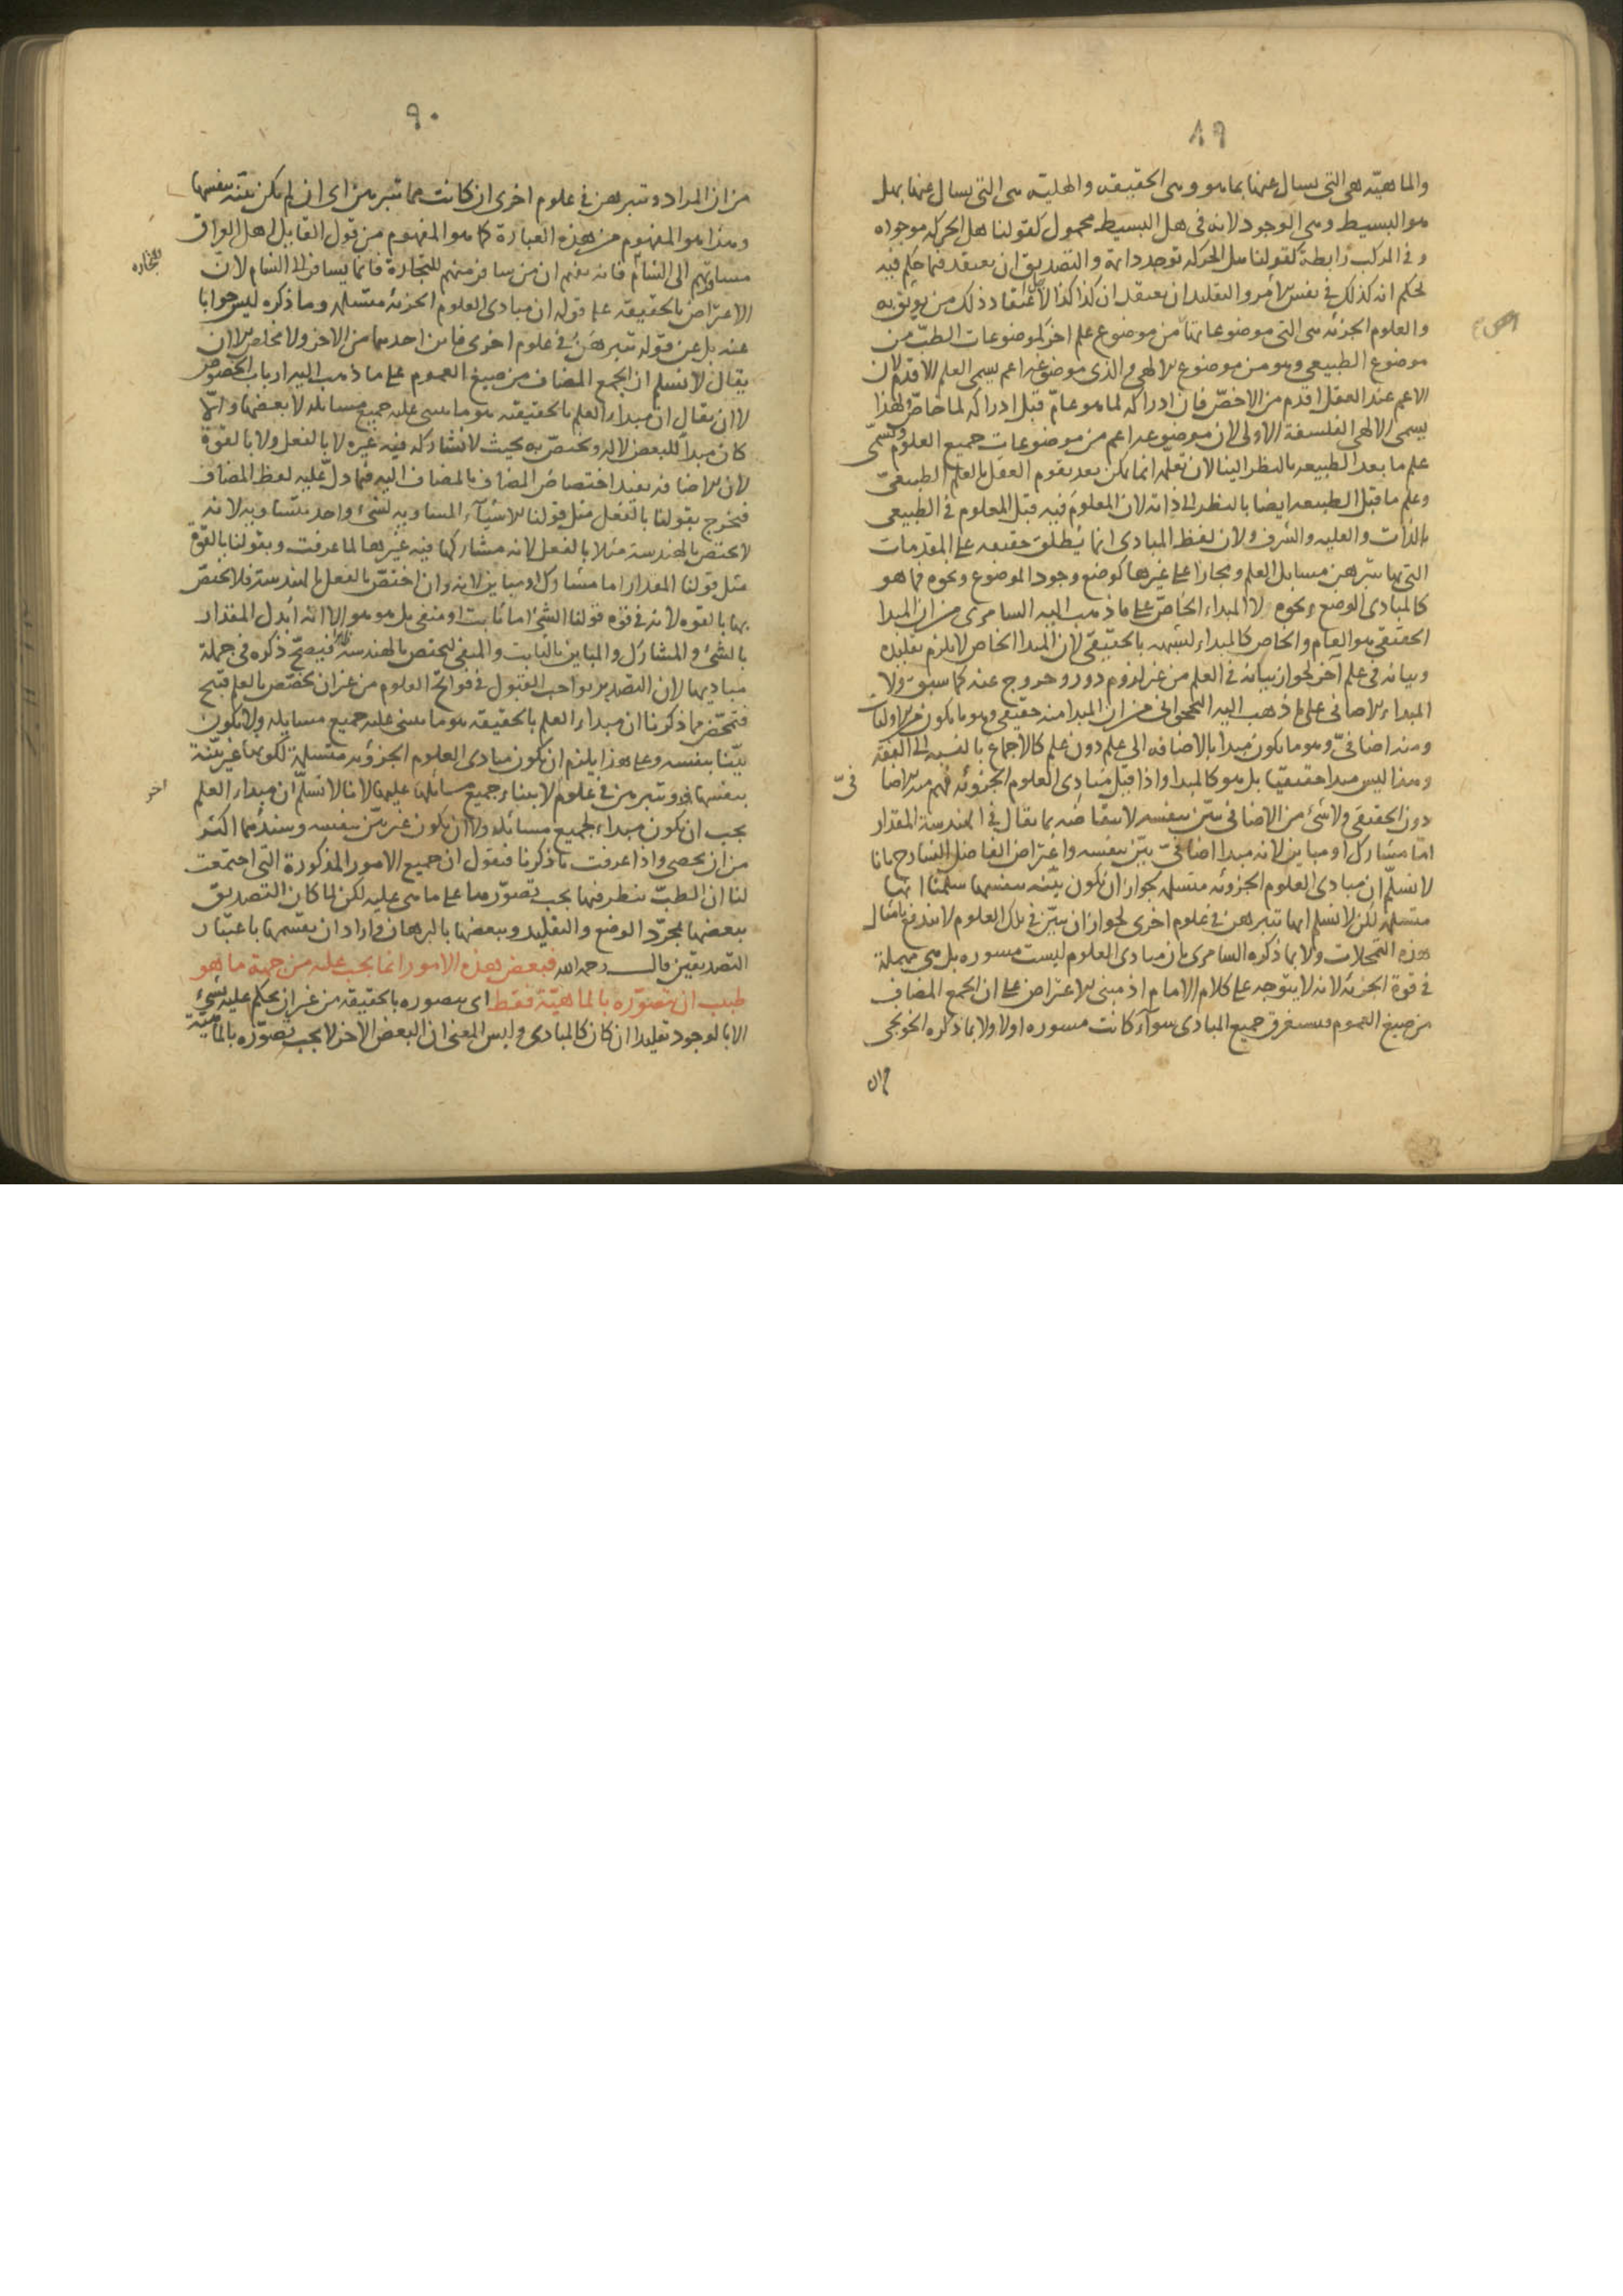 ٨٩
والماهيّة هي التي يسال عنها بما هو وهي الحقيقه والهلية هي التي يسال عنها بهل
هو البسيط وهي الوجود لانه في هل البسيط محمول كقولنا هل الحركه موجوده
وفي المركب رابطة كقولنا هل الحركه توجد دايمة والتصديق ان يعتقد فيما حكم فيه
بحكم انه كذلك في نفس الامر والتقليد ان يعتقد ان كذا كذا لاعتقاد ذلك من يوثق به
والعلوم الجزئه هي التي موضوعاتها من موضوع علم اخر كموضوعات الطبّ من
موضوع الطبيعي وهو من موضوع الالهي والذي موضوعه اعم يسمى العلم الاقدم لان
الاعم عند العقل اقدم من الاخصّ فان ادراكه لما هو عامّ قبل ادراكه لما خاصّ ولهذا
يسمى الالهي الفلسفة الاولى لان موضوعه اعم من موضوعات جميع العلوم ويسمّى
علم ما بعد الطبيعه بالنظر الينا لان تعلمه انما يكون بعد تقوم العقل بالعلم الطبيعيّ
وعلم ما قبل الطبيعه ايضا بالنظر الى ذاته لان المعلوم فيه قبل المعلوم في الطبيعي
بالذات والعليه والشرف ولان لفظ المبادى انما يُطلق حقيقه على المقدمات
التي بها تبرهن مسايل العلم ومجازا على غيرها كوضع وجود الموضوع ونحوه فما هو
كالمبادى الوضع ونحوه لا المبداء الخاصّ على ما ذهب اليه السامرى من ان المبدا
الحقيقي هو العام والخاص كالمبداء لشبهه بالحقيقي لان المبدا الخاص لا يلزم تقليده
وبيانه في علم آخر لجواز بيانه في العلم من غير لزوم دور وخروج عنه كما سبق ولا
المبداء الاضافى على ما ذهب اليه النخجوانى من ان المبدا منه حقيقي وهو ما يكون من الاوليات
ومنه اضافيّ وهو ما يكون مبدا بالاضافه الى علم دون علم كالاجماع بالنسبه الى الفقه
وهذا ليس مبدا حقيقيّا بل هو كالمبدا واذا قيل مبادى العلوم الجزوئه فهم منه الاضا
فىّ
دون الحقيقي ولا شئ من الاضافى بيّن بنفسه لانتقاضه بما يقال في الهندسة المقدار
امّا مشارك او مباين لانه مبدا اضافيّ بيّن بنفسه واعتراض الفاضل الشارح بانا
لا نسلّم ان مبادى العلوم الجزوئه متسلمه لجواز ان تكون بيّنه بنفسها سلّمنا انها
متسلمة لكن لا نسلم انها تبرهن في علوم اخرى لجواز ان تبيّن في تلك العلوم لا يندفع بامثال
هذه التمحلات ولا بما ذكره السامرى بان مبادى العلوم ليست مسوره بل هي مهملة
في قوة الجزئه لانه لا يتوجه على كلام الامام اذ مبنى الاعتراض على ان الجمع المضاف
من صيغ العموم فيستغرق جميع المبادى سوآء كانت مسوره اولا ولا بما ذكره الخونجى
من ان
٩٠
من ان المراد وتبرهن في علوم اخرى ان كانت مما تبرهن اى ان لم يكن بيّنه بنفسها
وهذا هو المفهوم من هذه العبارة كما هو المفهوم من قول القايل اهل العراق
مسافرتهم الى الشام فانه يفهم ان من سافر منهم للتجارة فانما يسافر الى الشام لان
للتجاره
الاعتراض بالحقيقة على قوله ان مبادى العلوم الجزئه متسلمه وما ذكره ليس جوابا
عنه بل عن قوله تبرهن في علوم اخرى فاين احدهما من الاخر ولا مخلص الا ان
يقال لا نسلم ان الجمع المضاف من صيغ العموم على ما ذهب اليه ارباب الخصوص
لا ان يقال ان مبداء العلم بالحقيقه هو ما يبنى عليه جميع مسايله لا بعضها والّا
كان مبدأ للبعض لا له ويختصّ به بحيث لا يشاركه فيه غيره لا بالفعل ولا بالقوّة
لان الاضافه يفيد اختصاص المضاف بالمضاف اليه فيما دلّ عليه لفظ المضاف
فيخرج بقولنا بالفعل مثل قولنا الاشيآء المساويه لشئ واحد متساويه لانه
لا يختص بالهندسة مثلا بالفعل لانه مشاركها فيه غيرها لما عرفت وبقولنا بالقوّة
مثل قولنا المقدار اما مشارك او مباين لانه وان اختصّ بالفعل بالهندسة فلا يختصّ
بها بالقوه لانه في قوّه قولنا الشئ اما ثابت او منفى بل هو هو الا انه ابدل المقدار
بالشئ والمشارك والمباين بالثابت والمنفى ليختص بالهندسة فيصحّ ذكره في جملة
مباديها لان التصدير بواجب القبول في فواتح العلوم من غير ان يخصّص بالعلم قبيح
فتمخّض مما ذكرنا ان مبداء العلم بالحقيقه هو ما يبنى عليه جميع مسايله ولا يكون
بيّنا بنفسه وعلى هذا يلزم ان يكون مبادى العلوم الجزوّيه متسلمة لكونها غير بيّنة
بنفسها وتبرهن في علوم لابتناء جميع مسائلها عليها لا نا لا نسلّم ان مبداء العلم
اخر
يجب ان يكون مبداء لجميع مسائله ولا ان يكون غير بيّن بنفسه وسندهما اكثر
من ان يحصى واذا عرفت ما ذكرنا فنقول ان جميع الامور المذكورة التي اجتمعت
لنا ان الطبّ ينظر فيها يجب تصوّرها على ما هي عليه لكن لما كان التصديق
ببعضها بمجرّد الوضع والتقليد وببعضها بالبرهان واراد ان يقسّمها باعتبار
التصديقين قال رحمه الله فبعض هذه الامور انما يجب عليه من جهة ما هو
طبيب ان يتصوّره بالماهيّة فقط اى يتصوره بالحقيقه من غير ان يحكم عليه بشئ
الا بالوجود تقليدا ان كان كالمبادى وليس المعنى ان البعض الاخر لا يجب تصوّره بالماهيّة